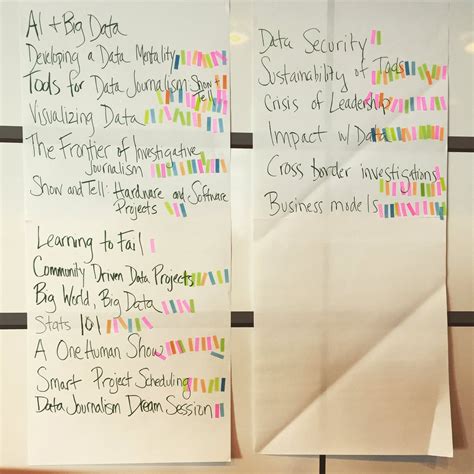 AI + Big Data
Developing a Data Mentality
Tools for Data Journalism Show + Tell
Visualizing Data
The Frontier of Investigative
Journalism
Show and Tell: Hardware and Software
Projects
Learning to Fail
Community Driven Data Projects
Big World, Big Data
Stats 101
A One Human Show
Smart Project Scheduling
Data Journalism Dream Session
Data Security
Sustainability of Tools
Crisis of Leadership
Impact w/ Data
Cross border investigations
Business models